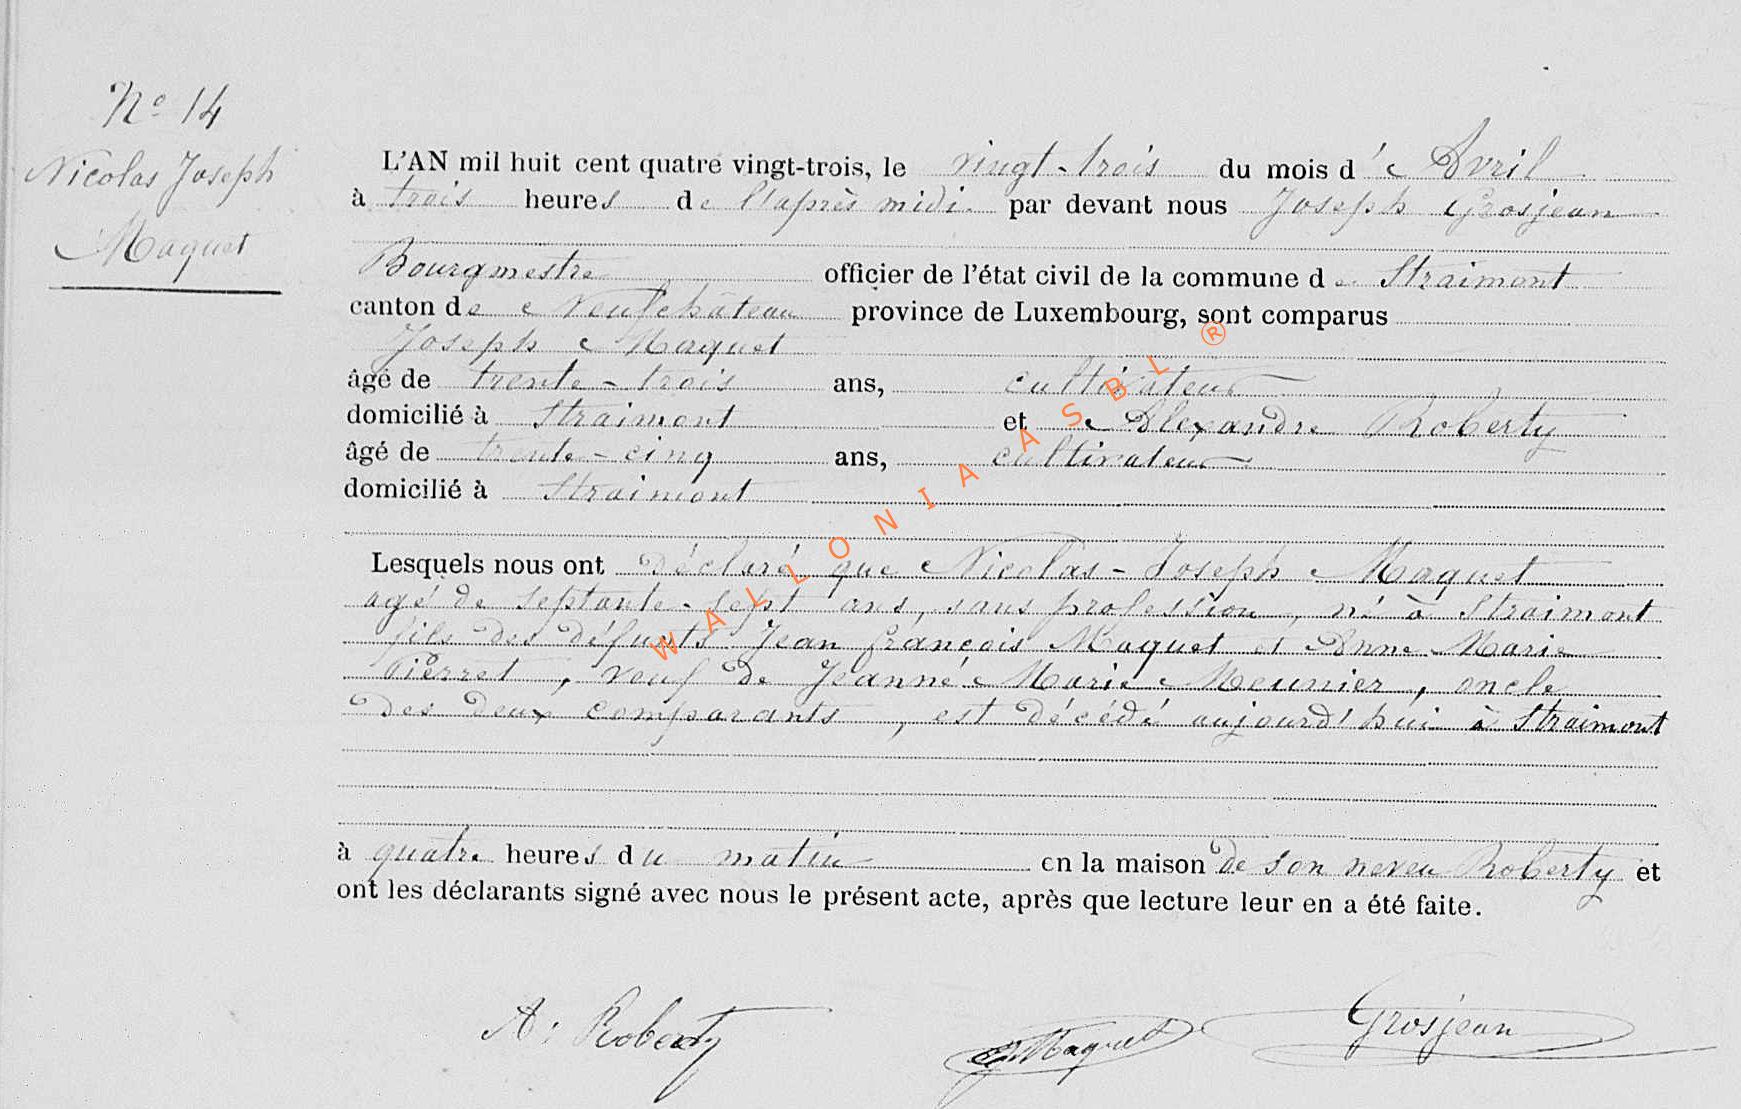 N° 14
Nicolas Joseph
Maquet
L'AN mil huit cent quatre vingt-trois, le vingt-trois du mois d' Avril
à trois heures de l'après midi par devant nous Joseph Grosjean
Bourgmestre officier de l'état civil de la commune de Straimont
canton de Neufchateau province de Luxembourg, sont comparus
Joseph Maquet
âgé de trente-trois ans, cultivateur
domicilié à Straimont et Alexandre Roberty
âgé de trente-cinq ans, cultivateur
domicilié à Straimont
Lesquels nous ont déclaré que Nicolas-Joseph Maquet
agé de septante-sept ans, sans profession, né à Straimont
fils des défunts Jean françois Maquet et Anne Marie
Pierret, veuf de Jeanne Marie Meunier, oncle
des deux comparants, est décédé aujourd'hui à Straimont
à quatre heures du matin en la maison de son neveu Roberty et
ont les déclarants signé avec nous le présent acte, après que lecture leur en a été faite.
A. Roberty Maquet Grosjean
WALLONIA ASBL ®